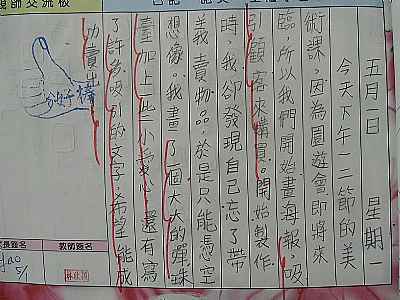 五月一日 星期一
今天下午一二節的美
術課，因為園遊會即將來
臨，所以我們開始畫海報，吸
引顧客來購買。開始製作
時，我卻發現自己忘了帶
義賣物品。於是只能憑空
想像。我畫了一個大大的彈珠
臺加上一些小愛心，還有寫
了許多吸引的文字，希望能成
功賣出
好棒
師交流板
長簽名
教師簽名
5/1